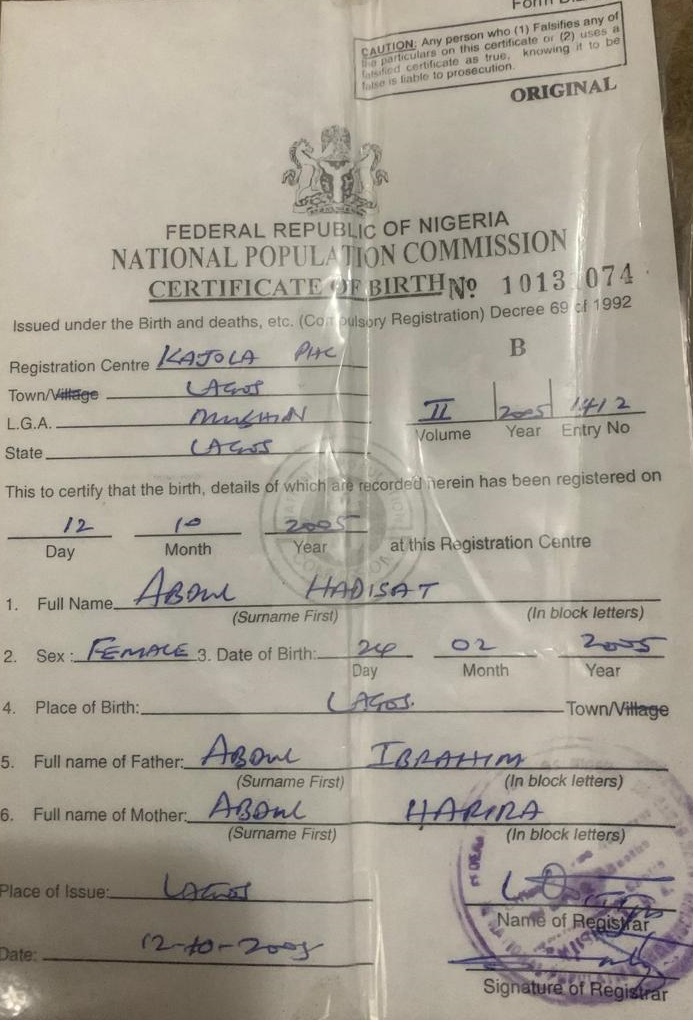 Form B
CAUTION: Any person who (1) Falsifies any of
the particulars on this certificate or (2) uses a
falsified certificate as true, knowing it to be
false is liable to prosecution.
ORIGINAL
FEDERAL REPUBLIC OF NIGERIA
NATIONAL POPULATION COMMISSION
CERTIFICATE OF BIRTH No 10131074
Issued under the Birth and deaths, etc. (Compulsory Registration) Decree 69 of 1992
B
Registration Centre KAJOLA PHC
Town/Village LAGOS
L.G.A. MUSHIN
State LAGOS
II 2005 1412
Volume Year Entry No
This to certify that the birth, details of which are recorded herein has been registered on
12 10 2005 at this Registration Centre
Day Month Year
1. Full Name ABDUL HADISAT
(Surname First) (In block letters)
2. Sex: FEMALE 3. Date of Birth: 24 02 2005
Day Month Year
4. Place of Birth: LAGOS Town/Village
5. Full name of Father: ABDUL IBRAHIM
(Surname First) (In block letters)
6. Full name of Mother: ABDUL HARIRA
(Surname First) (In block letters)
Place of Issue: LAGOS
Name of Registrar
Date: 12-10-2005
Signature of Registrar